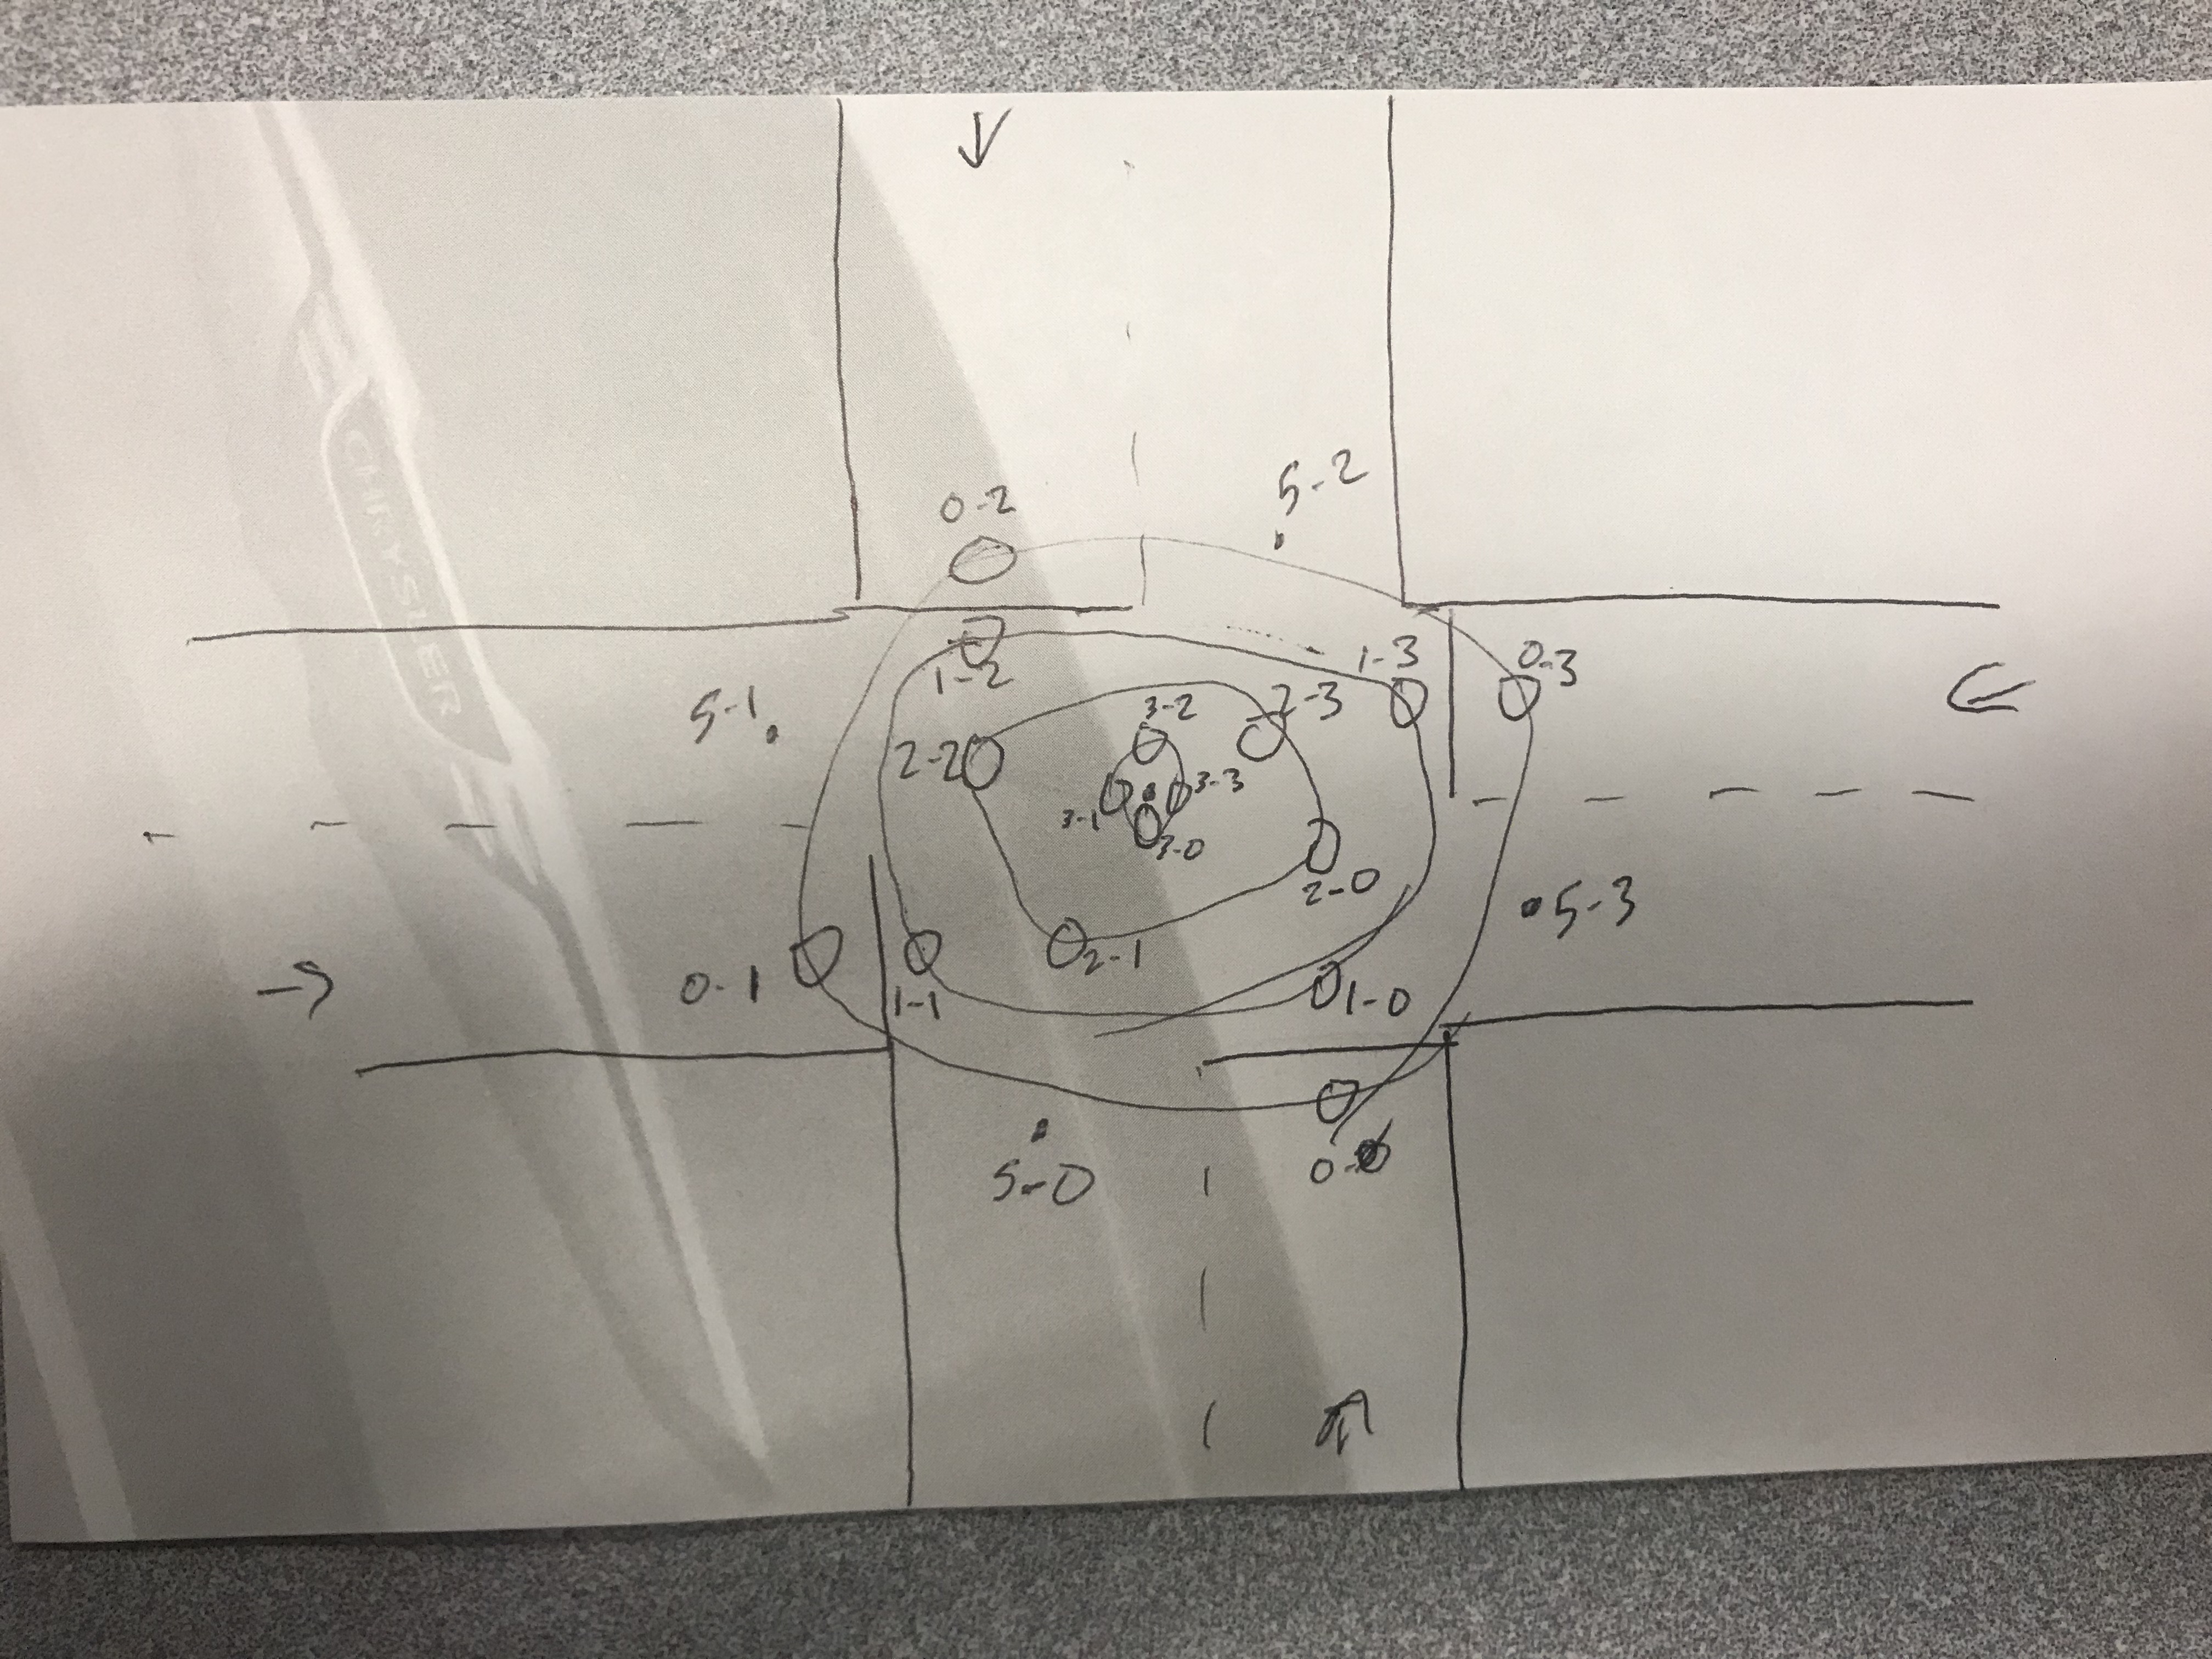 CHRYSLER
0-2
5-2
1-2
1-3
0-3
5-1
2-2
3-2
2-3
3-1
3-3
3-0
2-0
5-3
0-1
1-1
2-1
1-0
5-0